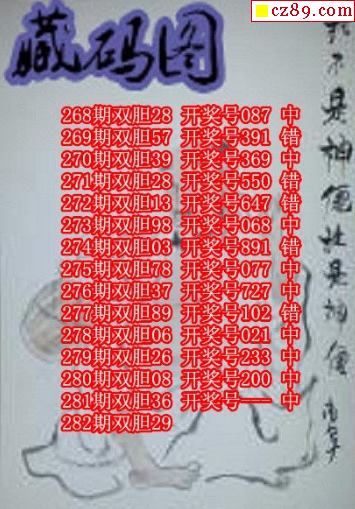 cz89.com
藏码图
268期双胆28 开奖号087 中
269期双胆57 开奖号391 错
270期双胆39 开奖号369 中
271期双胆28 开奖号550 错
272期双胆13 开奖号647 错
273期双胆98 开奖号068 中
274期双胆03 开奖号891 错
275期双胆78 开奖号077 中
276期双胆37 开奖号727 中
277期双胆89 开奖号102 错
278期双胆06 开奖号021 中
279期双胆26 开奖号233 中
280期双胆08 开奖号200 中
281期双胆36 开奖号--- 中
282期双胆29
我不是神仙比是神仙